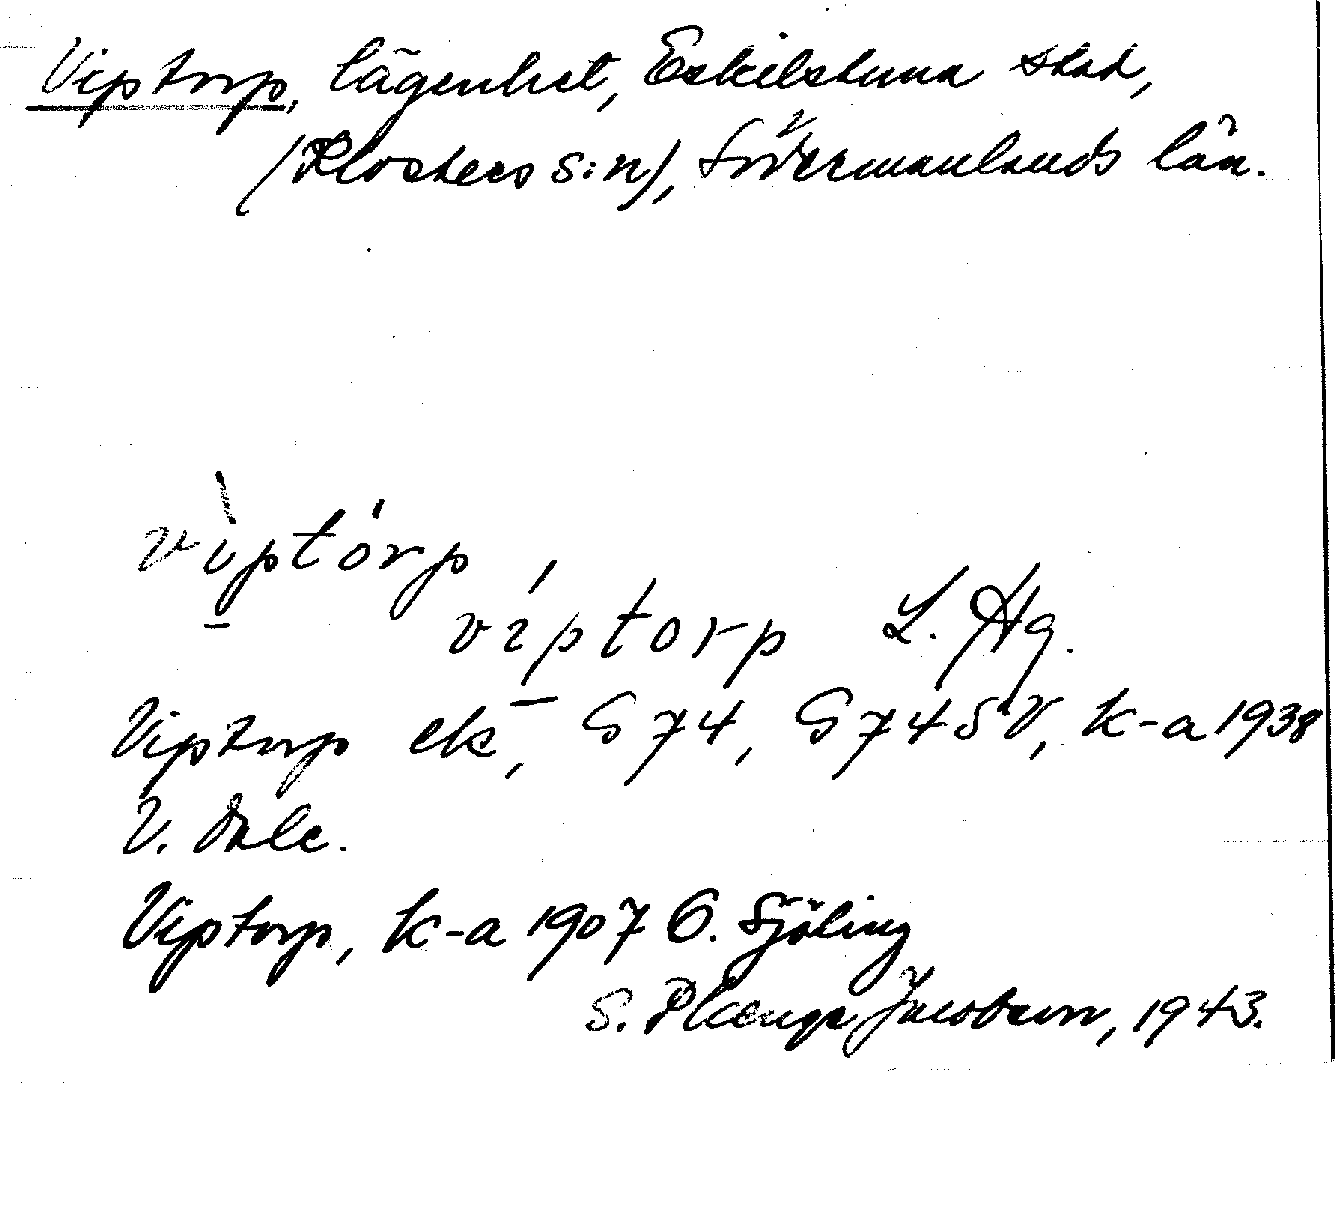 Viptorp, lägenhet, Eskilstuna stad,
(Klosters s:n), Södermanlands län.
vìptórp
víptorp L. Hg.
Viptorp ek, G 74, G 74 SV, k-a 1938
V. Dale.
Viptorp, k-a 1907 O. Sjöling
S. Plænge Jacobson, 1943.